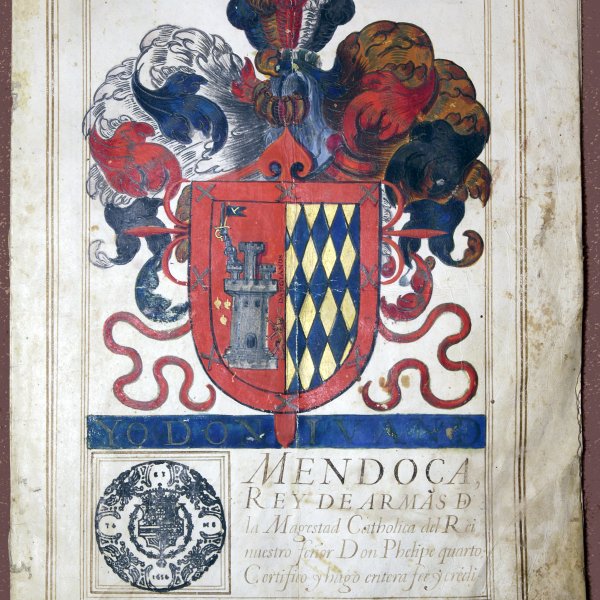 YO DON IVAN D
MENDOCA,
REY DE ARMAS D
la Magestad Catholica del Rei
nuestro señor Don Phelipe quarto,
Certifico y hago entera fee y credi-
1656